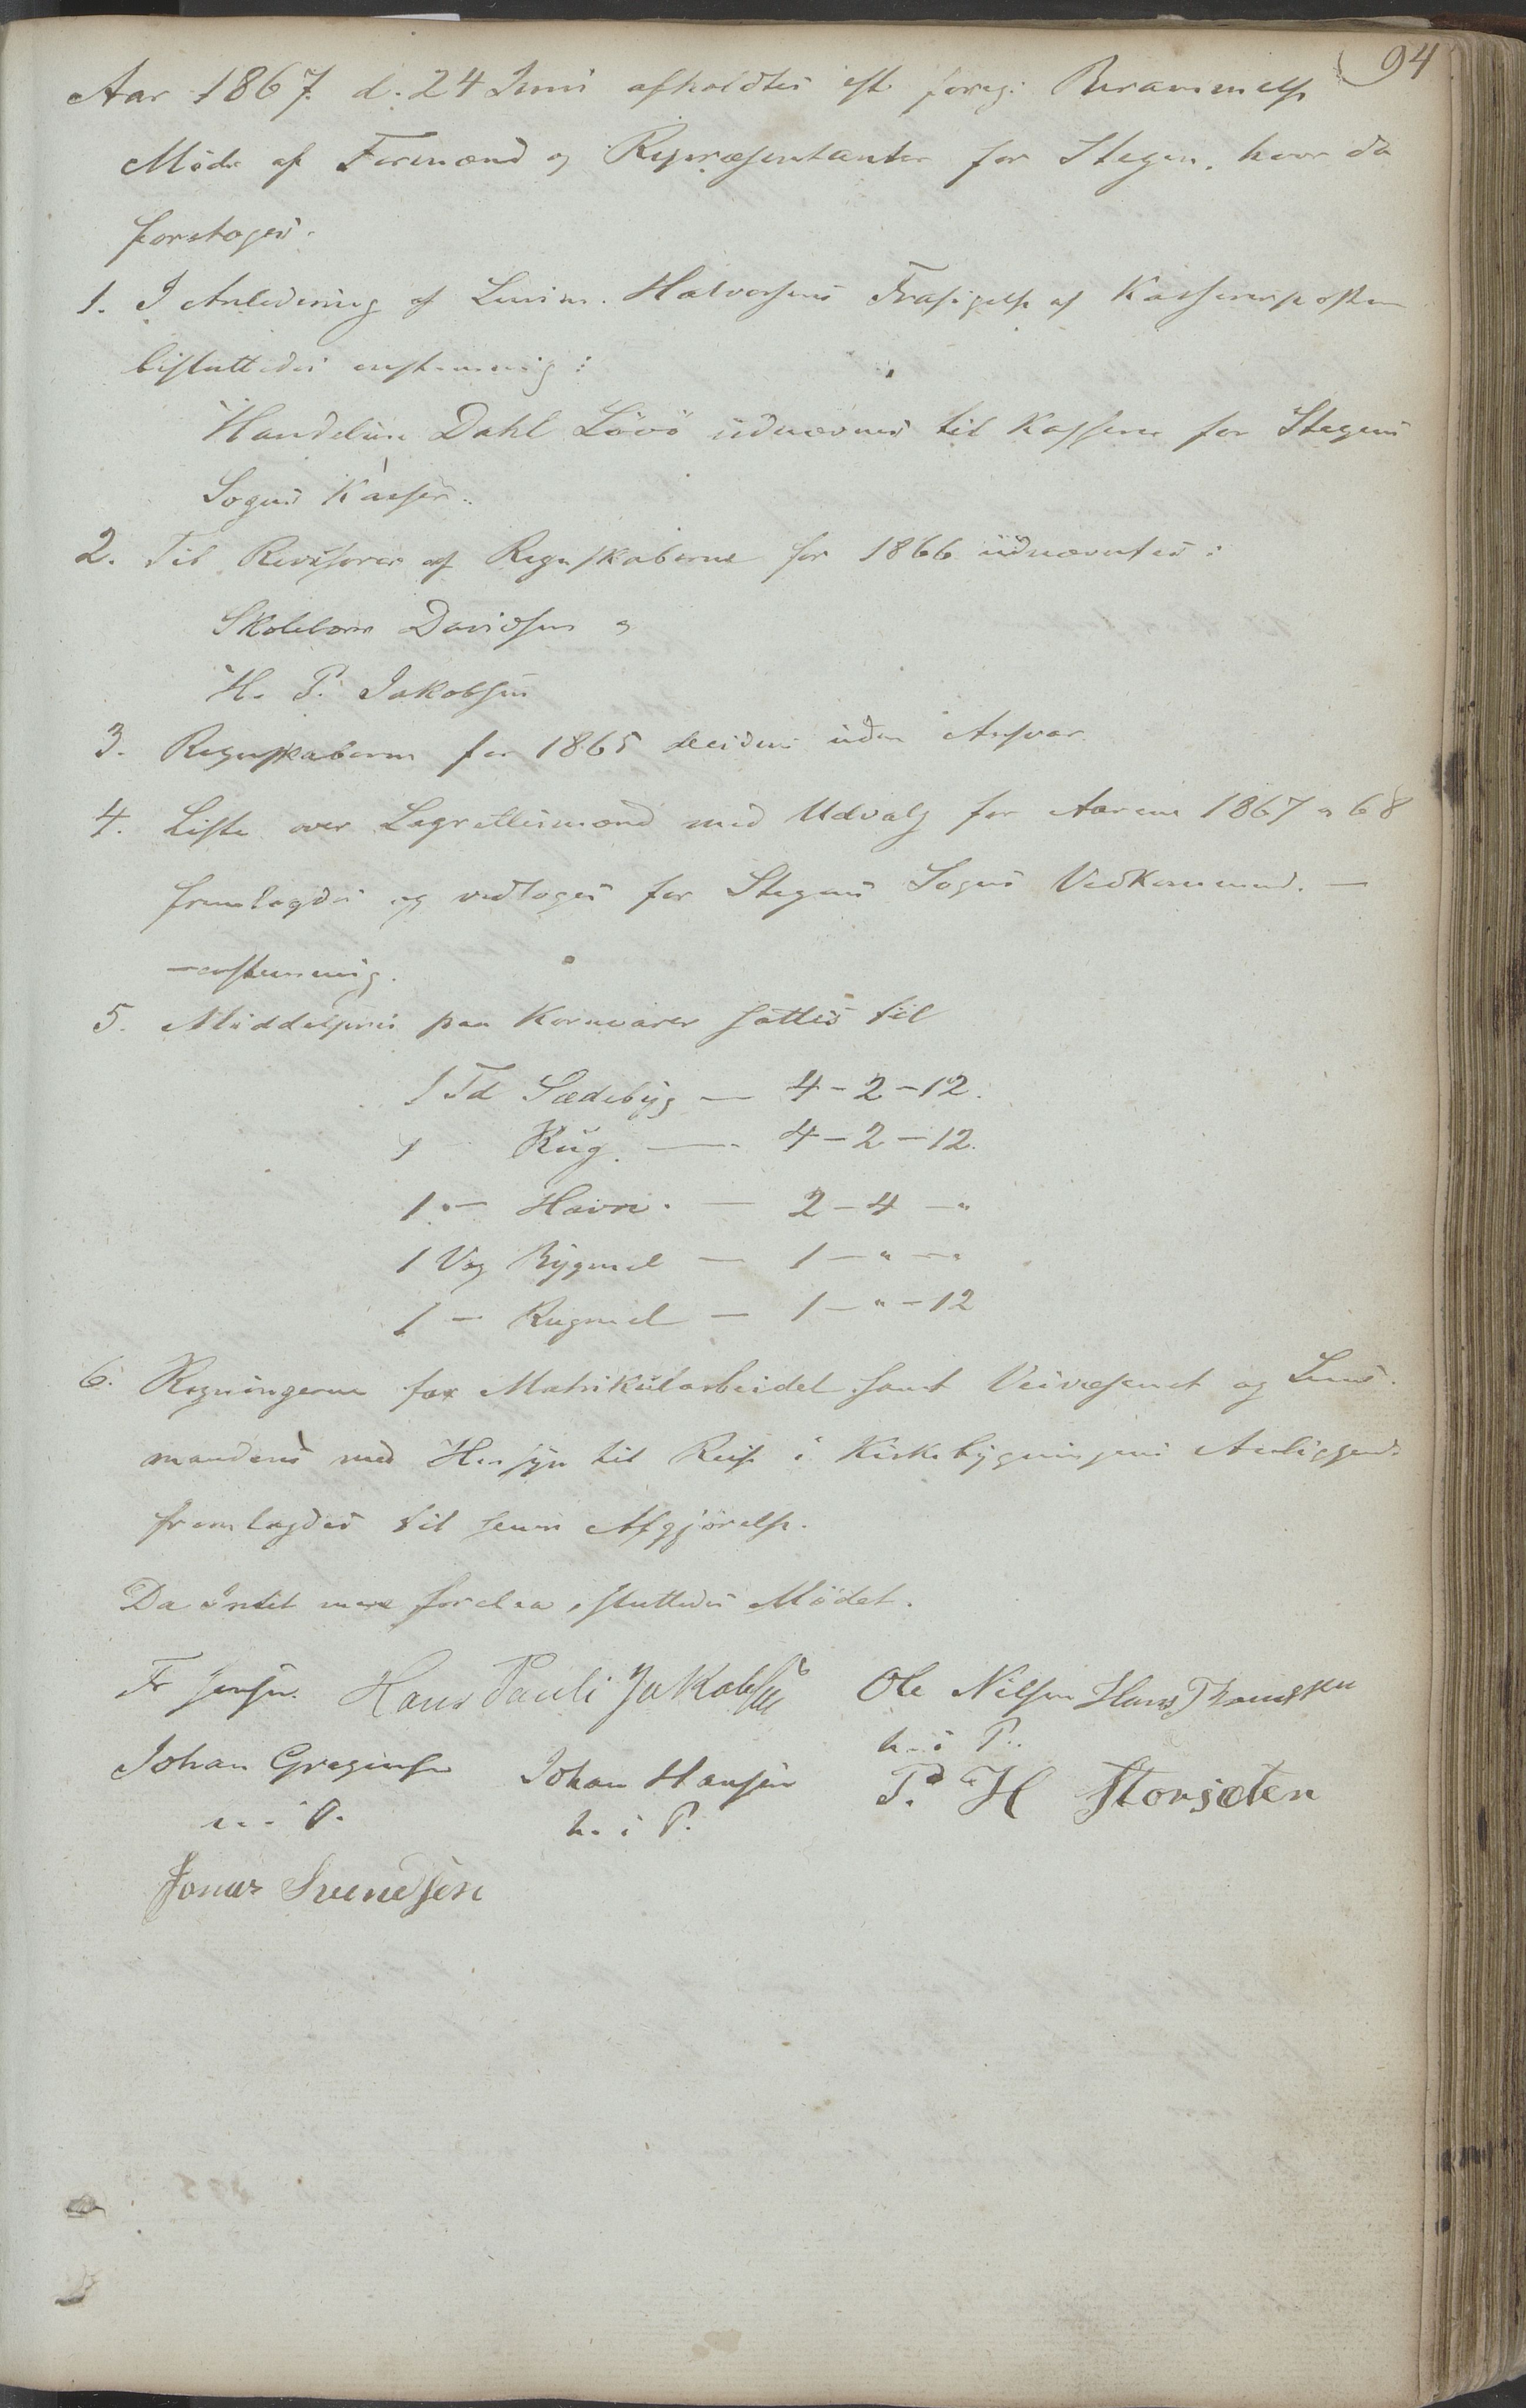 94
Aar 1867. d. 24 Juni afholdtes eft. foreg: Berammelse
Möde af Formænd og Repræsentanter for Stegen, hvor da
foretoges.
1. I Anledning af Lensm. Halvorsens Frasigelse af Kassererposten
besluttedes enstemmig:
Handelsm Dahl Lövö udnævnes til Kasserer for Stegens
Sogns Kasser.
2. Til Revisorer af Regnskaberne for 1866 udnævntes:
Skolelærer Davidsen og
H. P. Jakobsen
3. Regnskaberne for 1865 decideres uden Ansvar.
4. Liste over Lagrettesmænd med Udvalg for Aarene 1867 og 68
fremlagdes og vedtoges for Stegens Sogns Vedkommend. —
—enstemmig.
5. Middelpris paa Kornvarer sattes til
1 Td Sædebyg — 4-2-12.
1 Rug. — 4-2-12.
1 — Havre. — 2-4-"
1 Vog Bygmel — 1-"-"
1 — Rugmel — 1-"-12
6. Regningerne for Matrikularbeidet samt Veivæsenet og Lens-
mandens med Hensyn til Reise i Kirkebygningens Anliggende
fremlagdes til senere Afgjörelse.
Da Intet mere forelaa, sluttedes Mödet.
Fr Jensen. Hans Pauli Jakobsen Ole Nilsen Hans Thomessen
m. i P.
Johan Gregusen Johan Hansen P. H Storsæten
m. i P. m. i P.
Jonas Svendsen